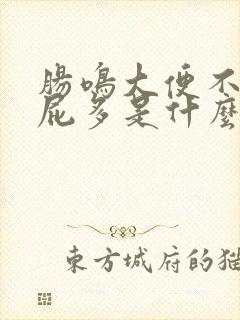 腸鳴大便不
屁多是什麼
東方城府的猫